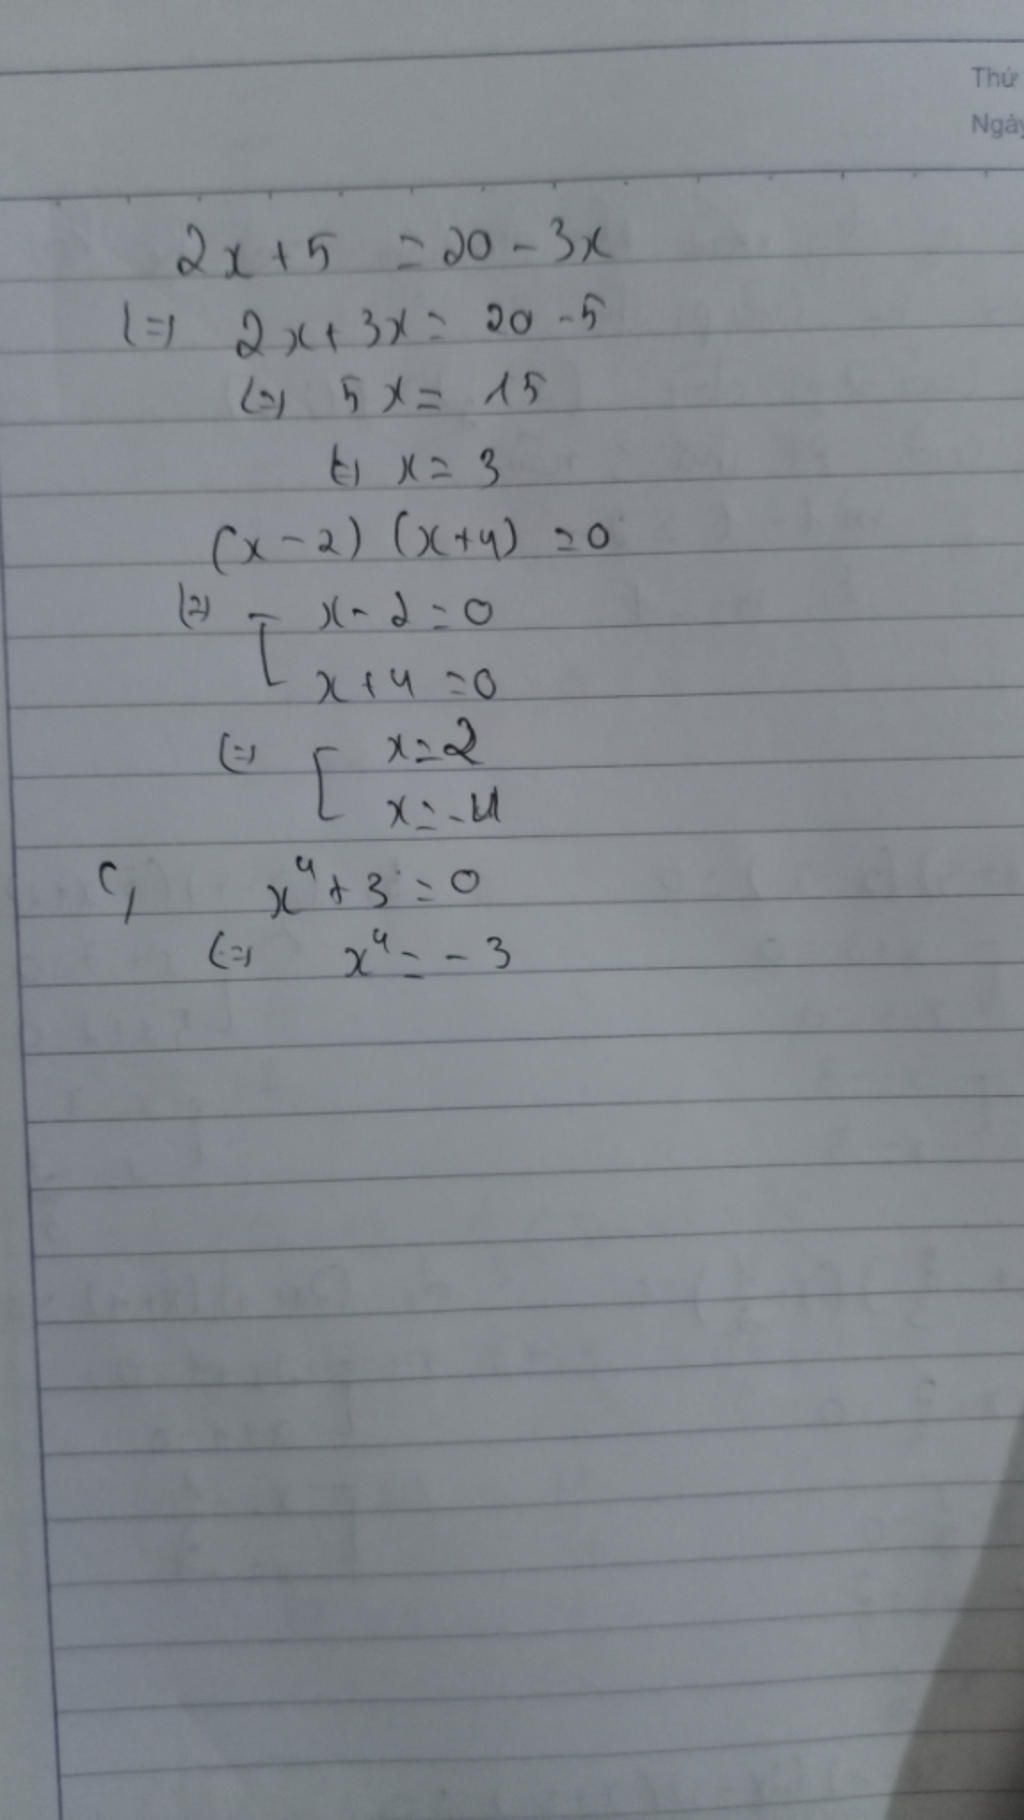 Thứ
Ngày
2x + 5 = 20 - 3x
(=) 2x + 3x = 20 - 5
(=) 5x = 15
(=) x = 3
(x - 2) (x + 4) = 0
(=) [ x - 2 = 0
x + 4 = 0
(=) [ x = 2
x = -4
c, x⁴ + 3 = 0
(=) x⁴ = - 3